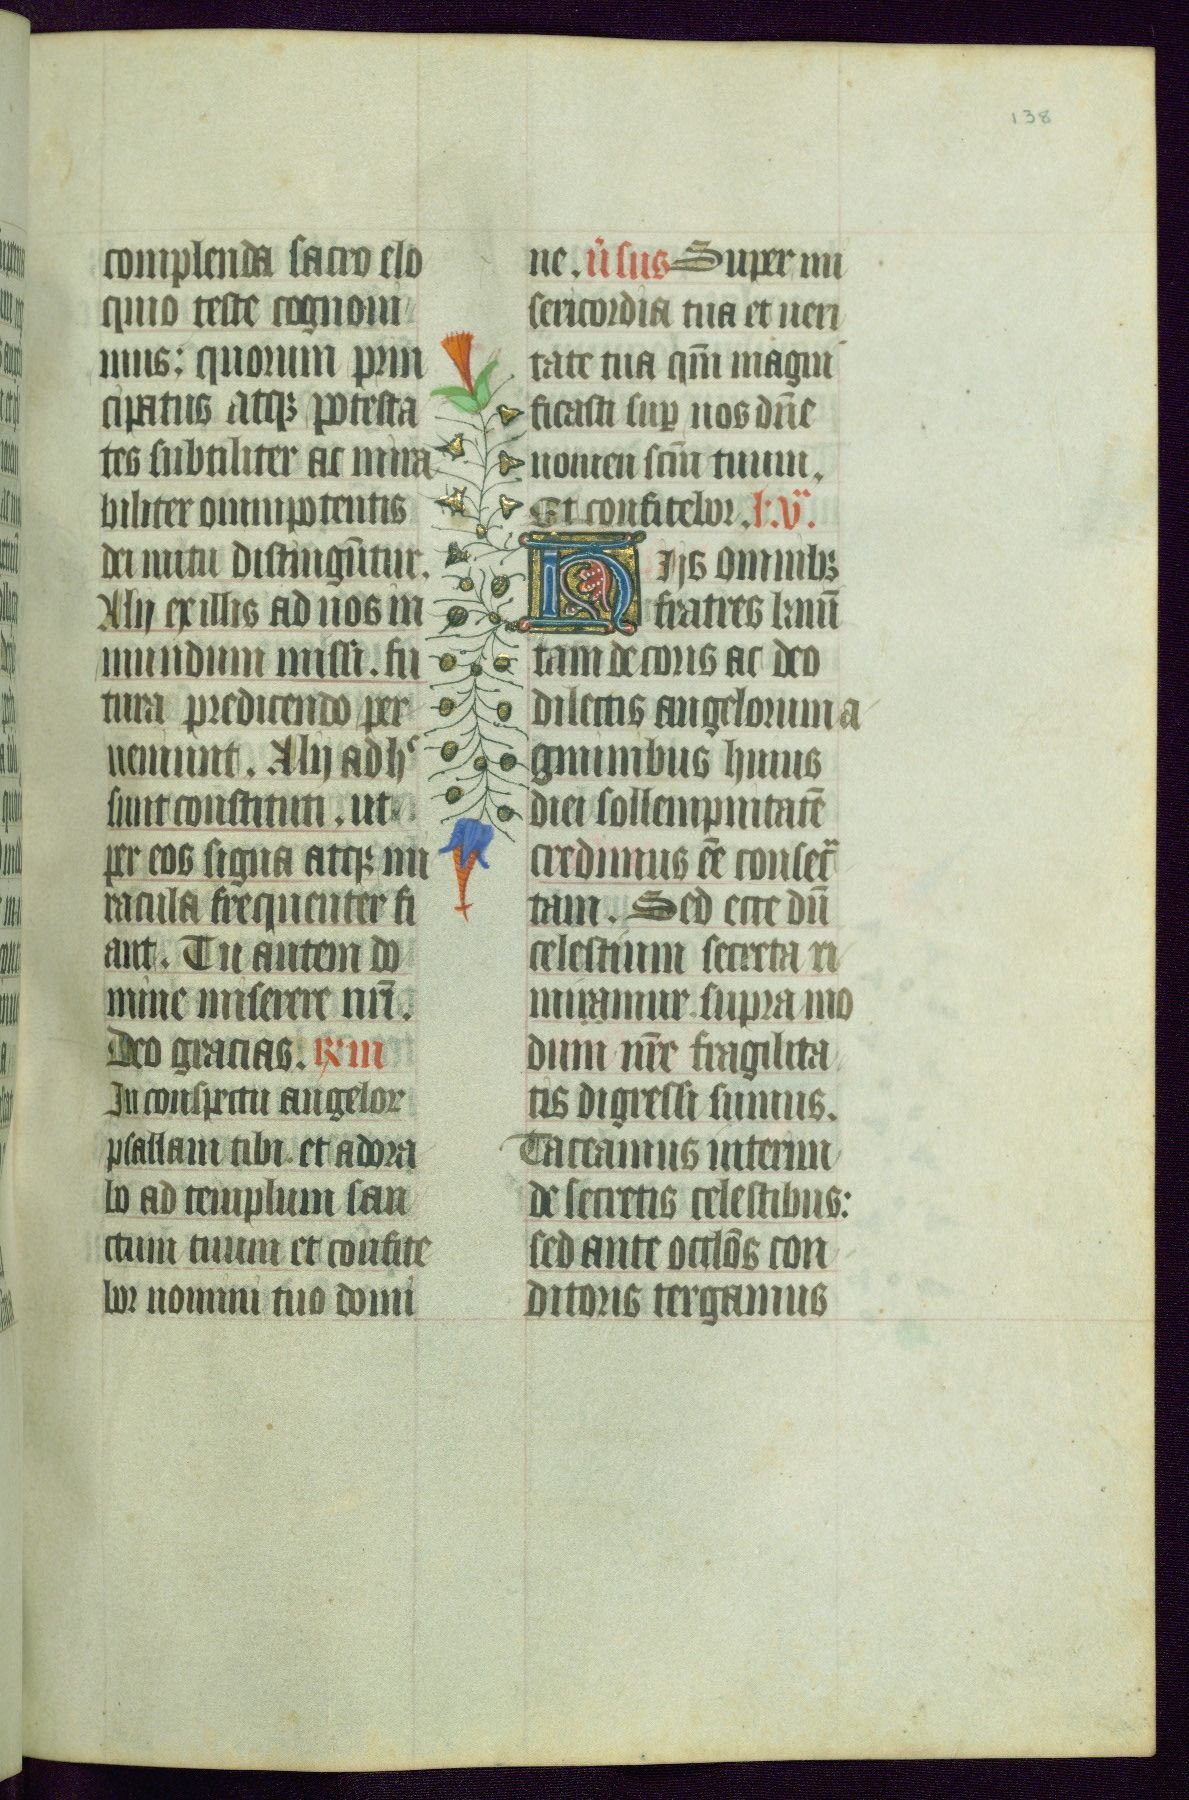 138
complenda sacro elo
quio teste cognoui
mus: quorum prin
cipatus atqꝫ potesta
tes subtiliter ac mira
biliter omnipotentis
dei nutu distingūtur.
Alij ex illis ad nos in
mundum missi. fu
tura predicendo per
ueniunt. Alij ad hͨ
sunt constituti. ut
per eos signa atqꝫ mi
racula freq̄uenter fi
ant. Tu autem do
mine miserere nr̄i.
Deo gracias. ꝶ iii
In conspectu angelor
psallam tibi et adora
bo ad templum san
ctum tuum et confite
bor nomini tuo domi
ne. v̄sus Super mi
sericordia tua et ueri
tate tua qm̄ magni
ficasti suꝑ nos dn̄e
nomen scm̄ tuum.
Et confitebor. l. v.
Hijs omnibꝫ
fratres karnū
tam de coris ac deo
dilectis angelorum a
gminibus huius
diei sollempnitatē
credimus eē consec̄
tam. Sed ecce dū
celestium secreta ri
miramur supra mo
dum nr̄e fragilita
tis digressi sumus.
Taceamus interim
de secretis celestibus:
sed ante oculōs con
ditoris tergamus